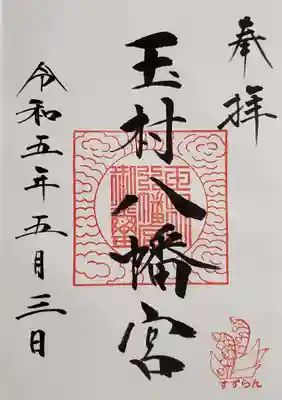 奉拝
玉村八幡宮
令和五年五月三日
すずらん